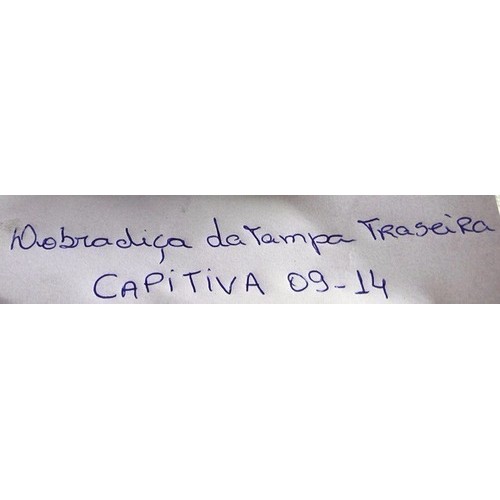 Dobradiça da Tampa TRASEiRA
CAPiTiVA 09-14